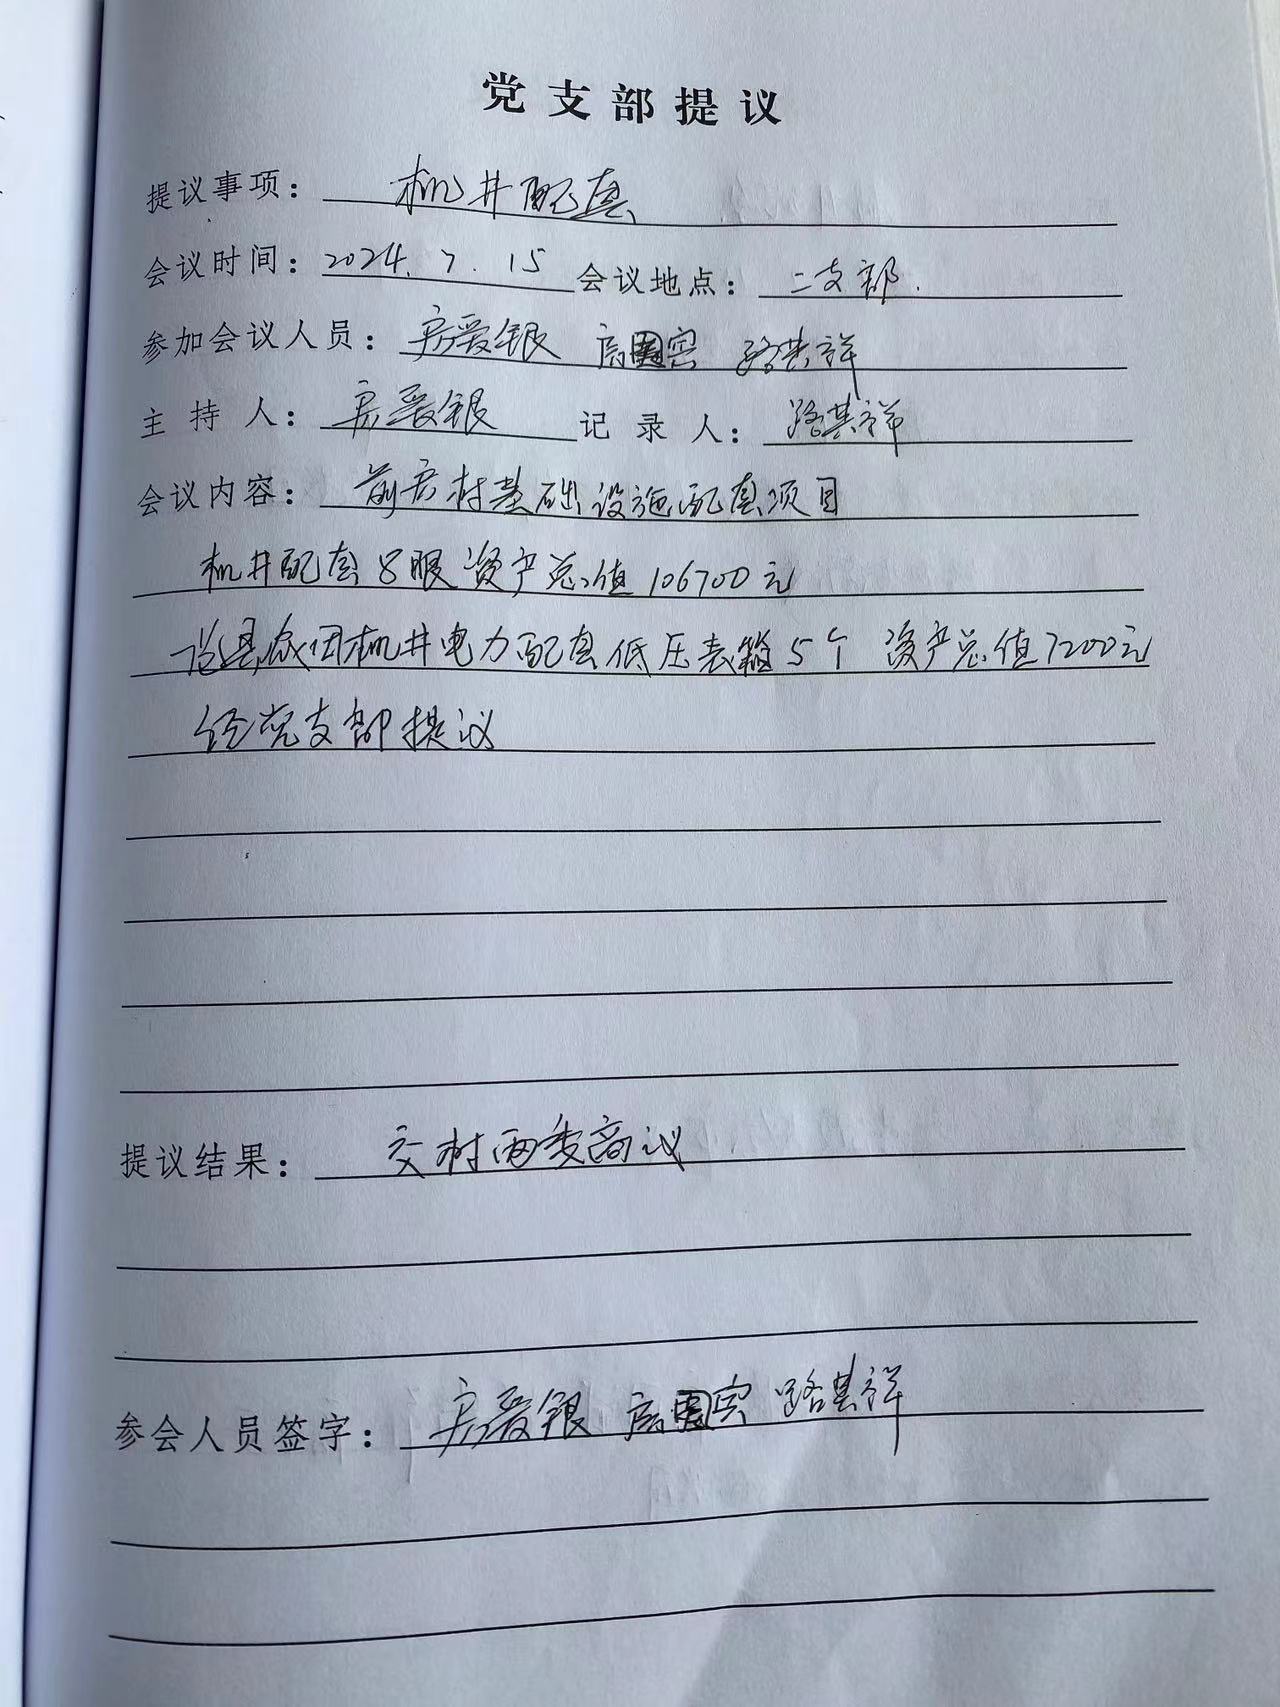 党支部提议
提议事项： 机井配套
会议时间：2024.7.15 会议地点：二支部.
参加会议人员：房爱银 房国宾 路其祥
主持人：房爱银 记录人：路其祥
会议内容：前房村基础设施配套项目
机井配套8眼资产总值106700元
农田机井电力配套低压表箱5个 资产总值7200元
经党支部提议
提议结果： 交村两委商议
参会人员签字：房爱银 房国宾 路其祥